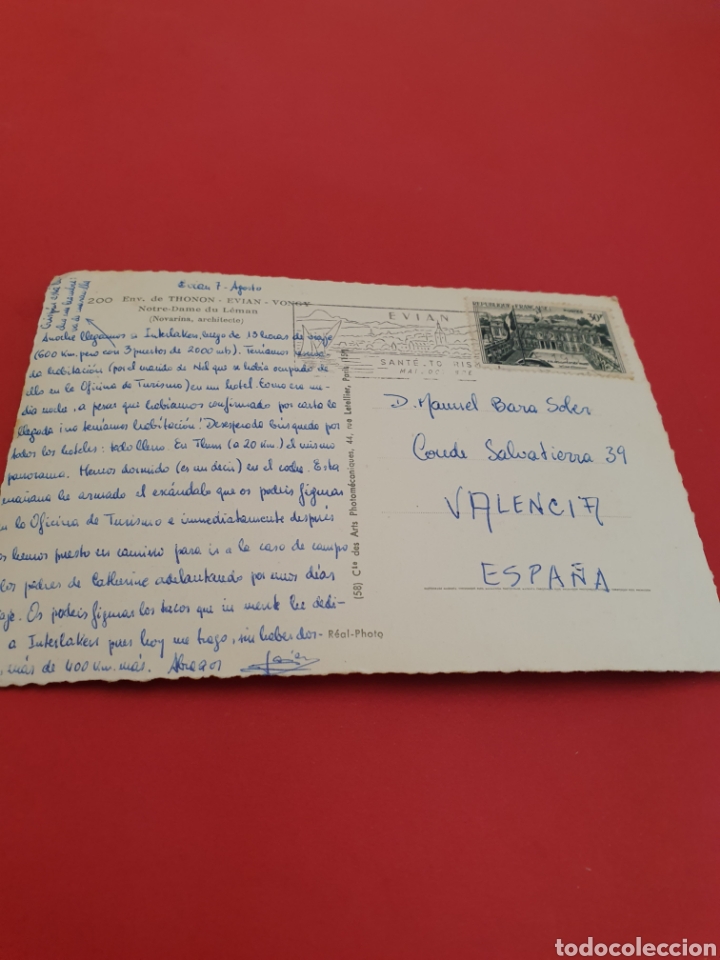 Evian 7 - Agosto
200 Env. de THONON - EVIAN - VONGY
Notre-Dame du Léman
(Novarina, architecte)
Anoche llegamos a Interlaken, luego de 13 horas de viaje
(600 Km. pero con 3 puertos de 2000 mts). Teníamos
da habitación (por el marido de Nel que se había ocupado de
ello en la Oficina de Turismo) en un hotel. Como era me-
dia noche, a pesar que habíamos confirmado por carta la
llegada ¡no teníamos habitación! Desesperada búsqueda por
todos los hoteles: todo lleno. En Thun (a 20 Km.) el mismo
panorama. Hemos dormido (es un decir) en el coche. Esta
mañana he armado el escándalo que os podéis figurar
en la Oficina de Turismo e inmediatamente después
os hemos puesto en camino para ir a la casa de campo
los padres de Catherine adelantando por unos días
aje. Os podéis figurar los tacos que in mente he dedi-
a Interlaken pues hoy me trago, sin haber dor-
más de 400 Km. más. Abrazos Javier
(58) Cie des Arts Photomécaniques, 44, rue Letellier, Paris
Réal-Photo
EVIAN
SANTÉ
REPUBLIQUE FRANÇAISE
POSTES
30F
D. Manuel Bara Soler
Conde Salvatierra 39
VALENCIA
ESPAÑA
todocoleccion